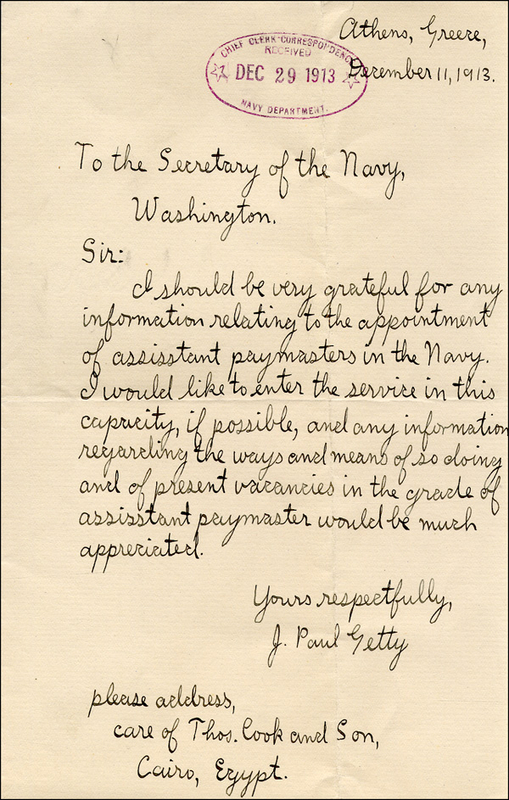 Athens, Greece,
CHIEF CLERK-CORRESPONDENCE
RECEIVED
DEC 29 1913
NAVY DEPARTMENT.
December 11, 1913.
To the Secretary of the Navy,
Washington.
Sir:
I should be very grateful for any
information relating to the appointment
of assisstant paymasters in the Navy.
I would like to enter the service in this
capacity, if possible, and any information
regarding the ways and means of so doing
and of present vacancies in the grade of
assisstant paymaster would be much
appreciated.
Yours respectfully,
J. Paul Getty
please address,
care of Thos. Cook and Son,
Cairo, Egypt.